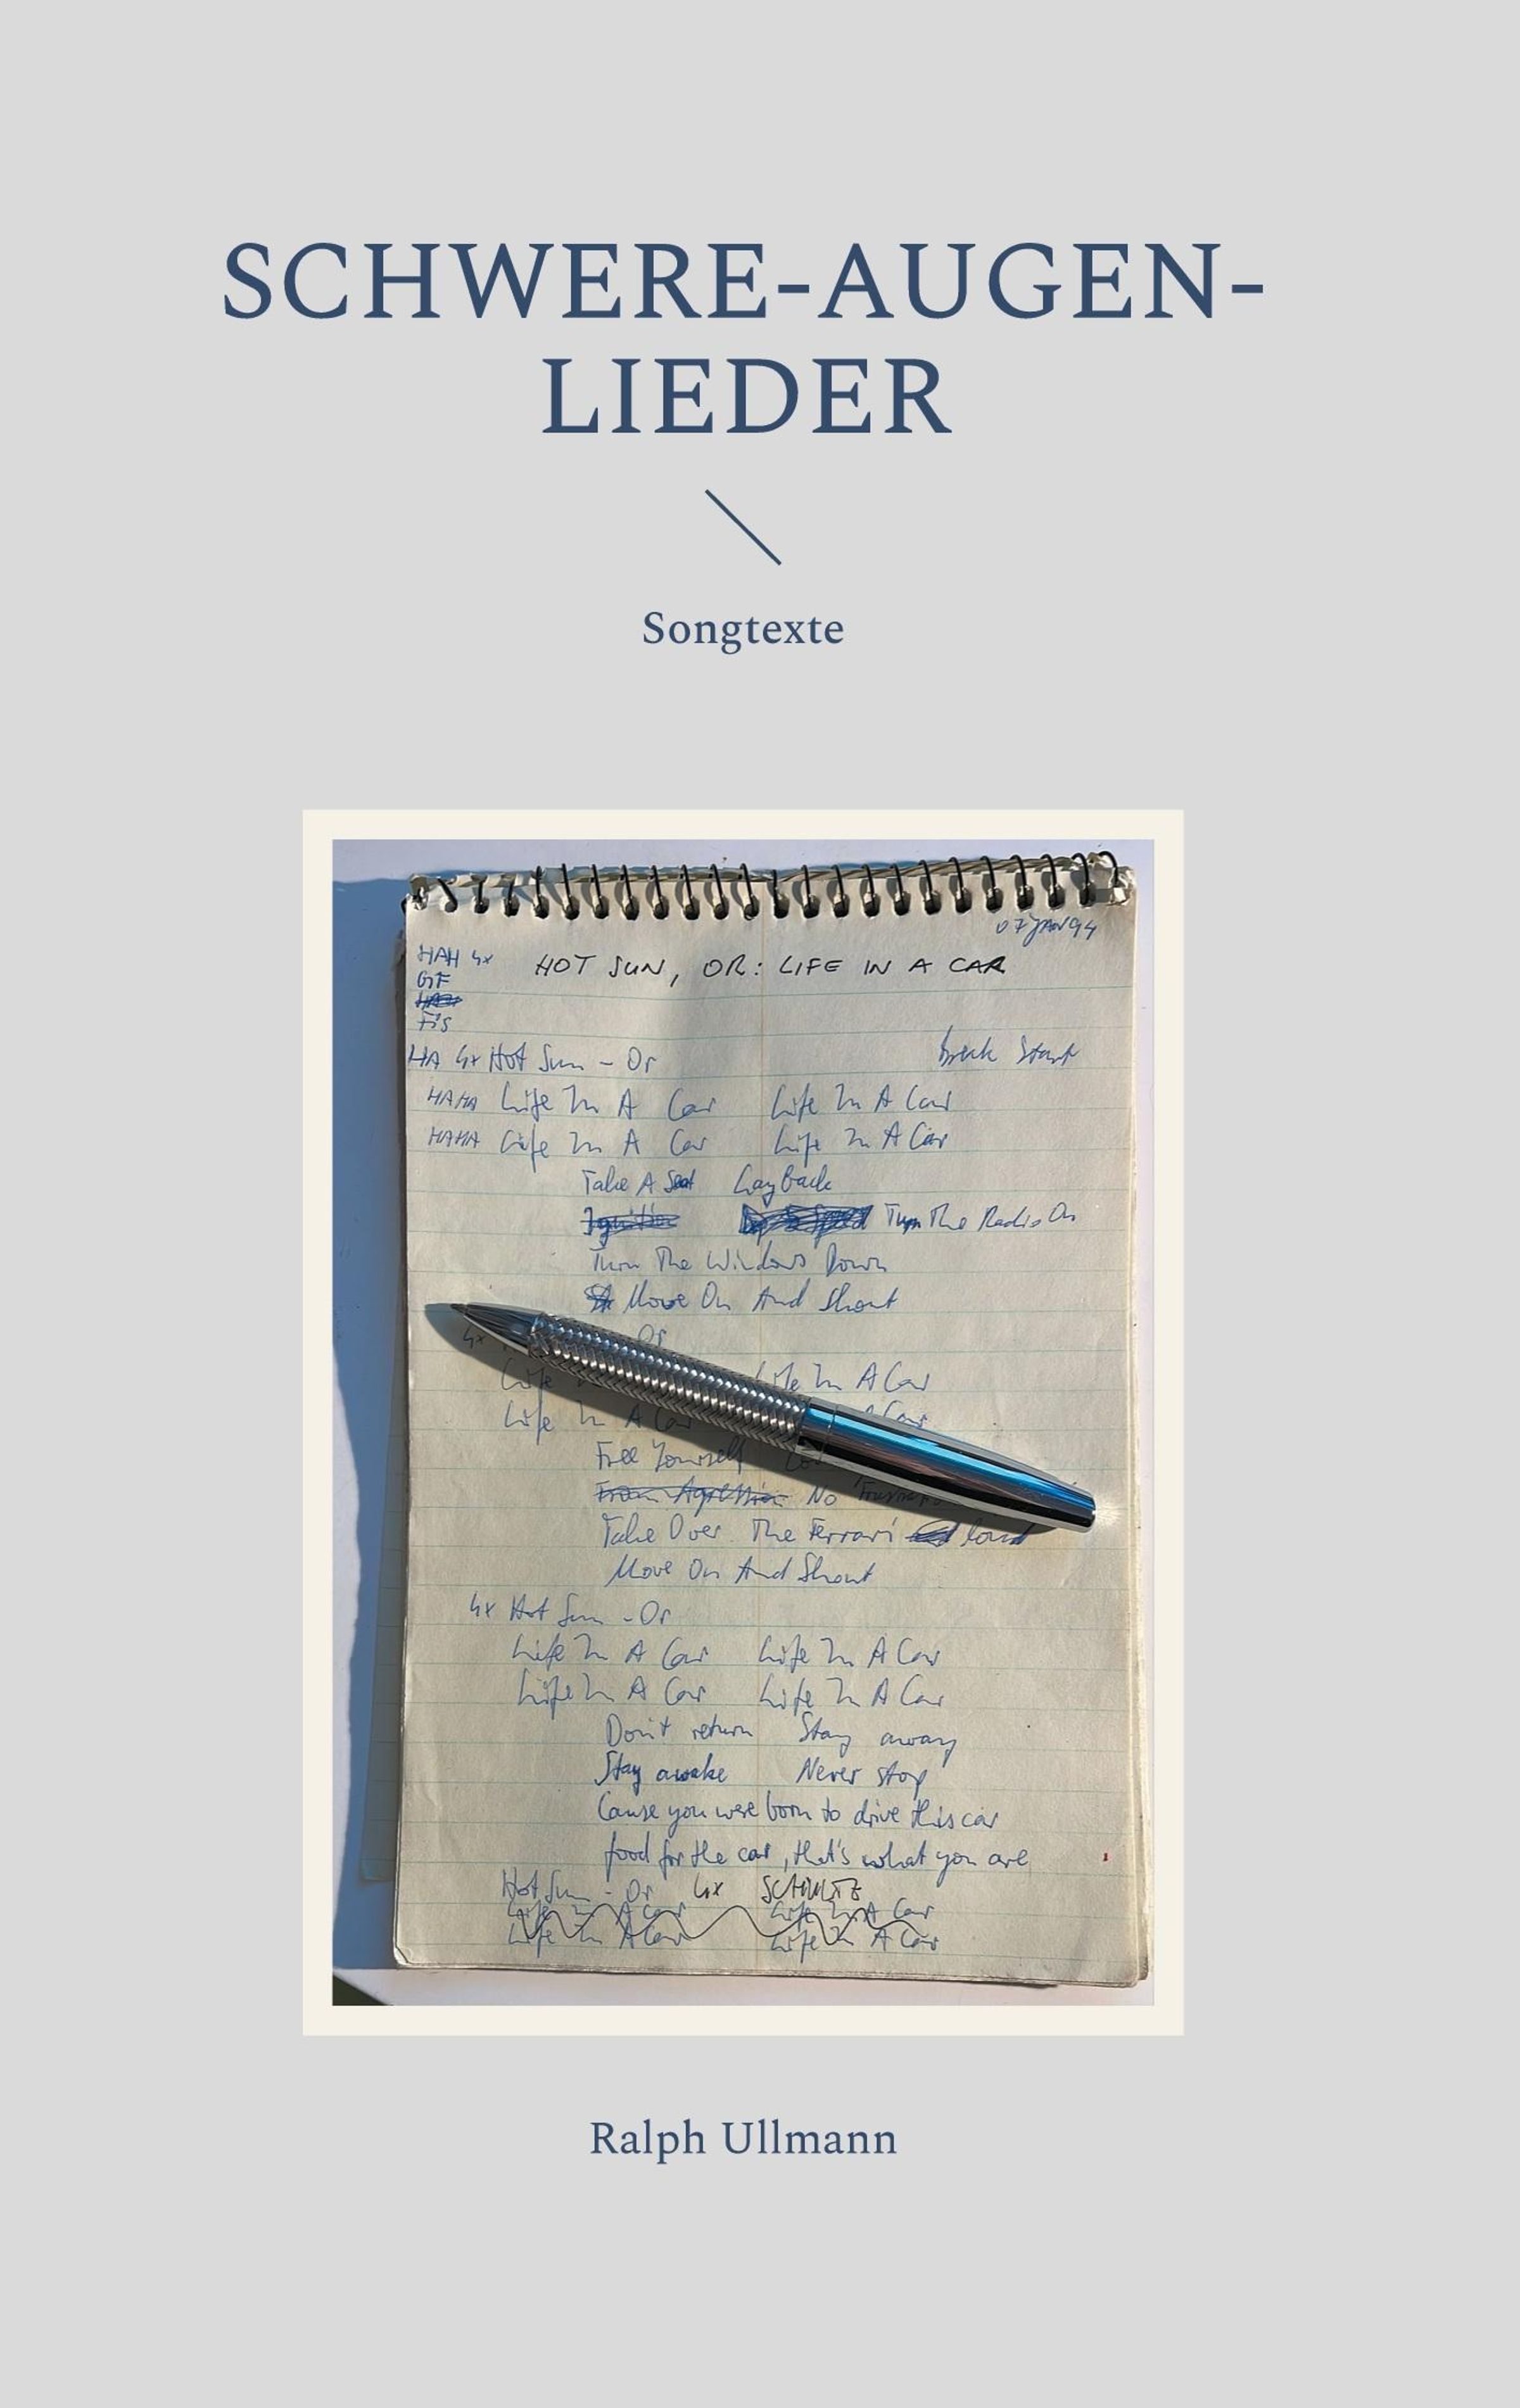 SCHWERE-AUGEN-
LIEDER
Songtexte
07 JAN 94
HAH 4x HOT SUN, OR: LIFE IN A CAR
GIF
Fis
HA 4x Hot Sun - Or break Start
HAHA Life In A Car Life In A Car
HAHA Life In A Car Life In A Car
Take A Seat Lay back
Ignition Turn The Radio On
Turn The Windows Down
Move On And Shout
4x Or
Life Life In A Car
Life In A Car A Car
Free Yourself
From Agression No
Take Over The Ferrari loud
Move On And Shout
4x Hot Sun - Or
Life In A Car Life In A Car
Life In A Car Life In A Car
Don't return Stay away
Stay awake Never stop
Cause you were born to drive this car
food for the car, that's what you are
Hot Sun - Or 4x
Life In A Car Life In A Car
Life In A Car Life In A Car
Ralph Ullmann